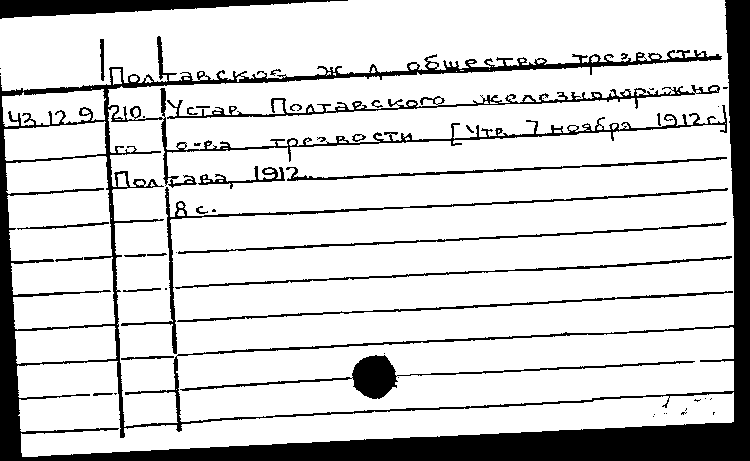 Полтавское ж. д. общество трезвости.
43.12.9 210 Устав Полтавского железнодорожно-
го о-ва трезвости [Утв. 7 ноября 1912 г.]
Полтава, 1912.
8 с.